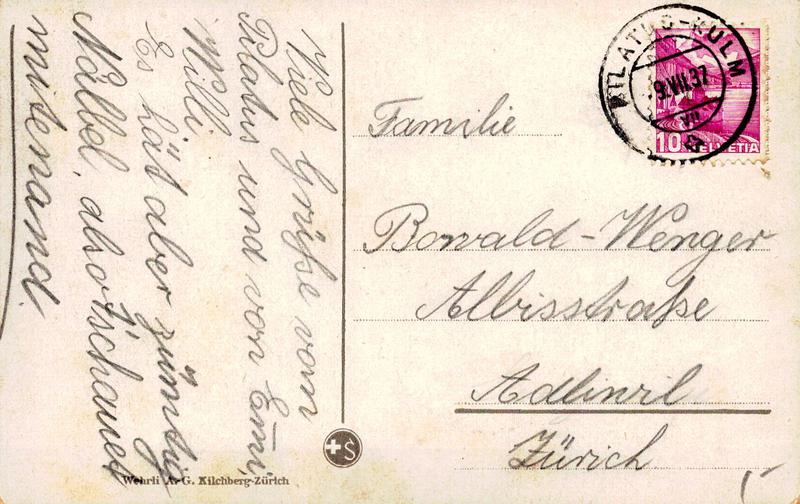 Viele Grüße vom
Pilatus und von Emi,
Willi.
Es hät aber zümftig
Näbel, also tschauet
mitenand.
Familie
Bowald-Wenger
Albisstraße
Adliswil
Zürich
PILATUS-KULM
9.VII.37
VII
10 HELVETIA
S
Wehrli A.-G. Kilchberg-Zürich